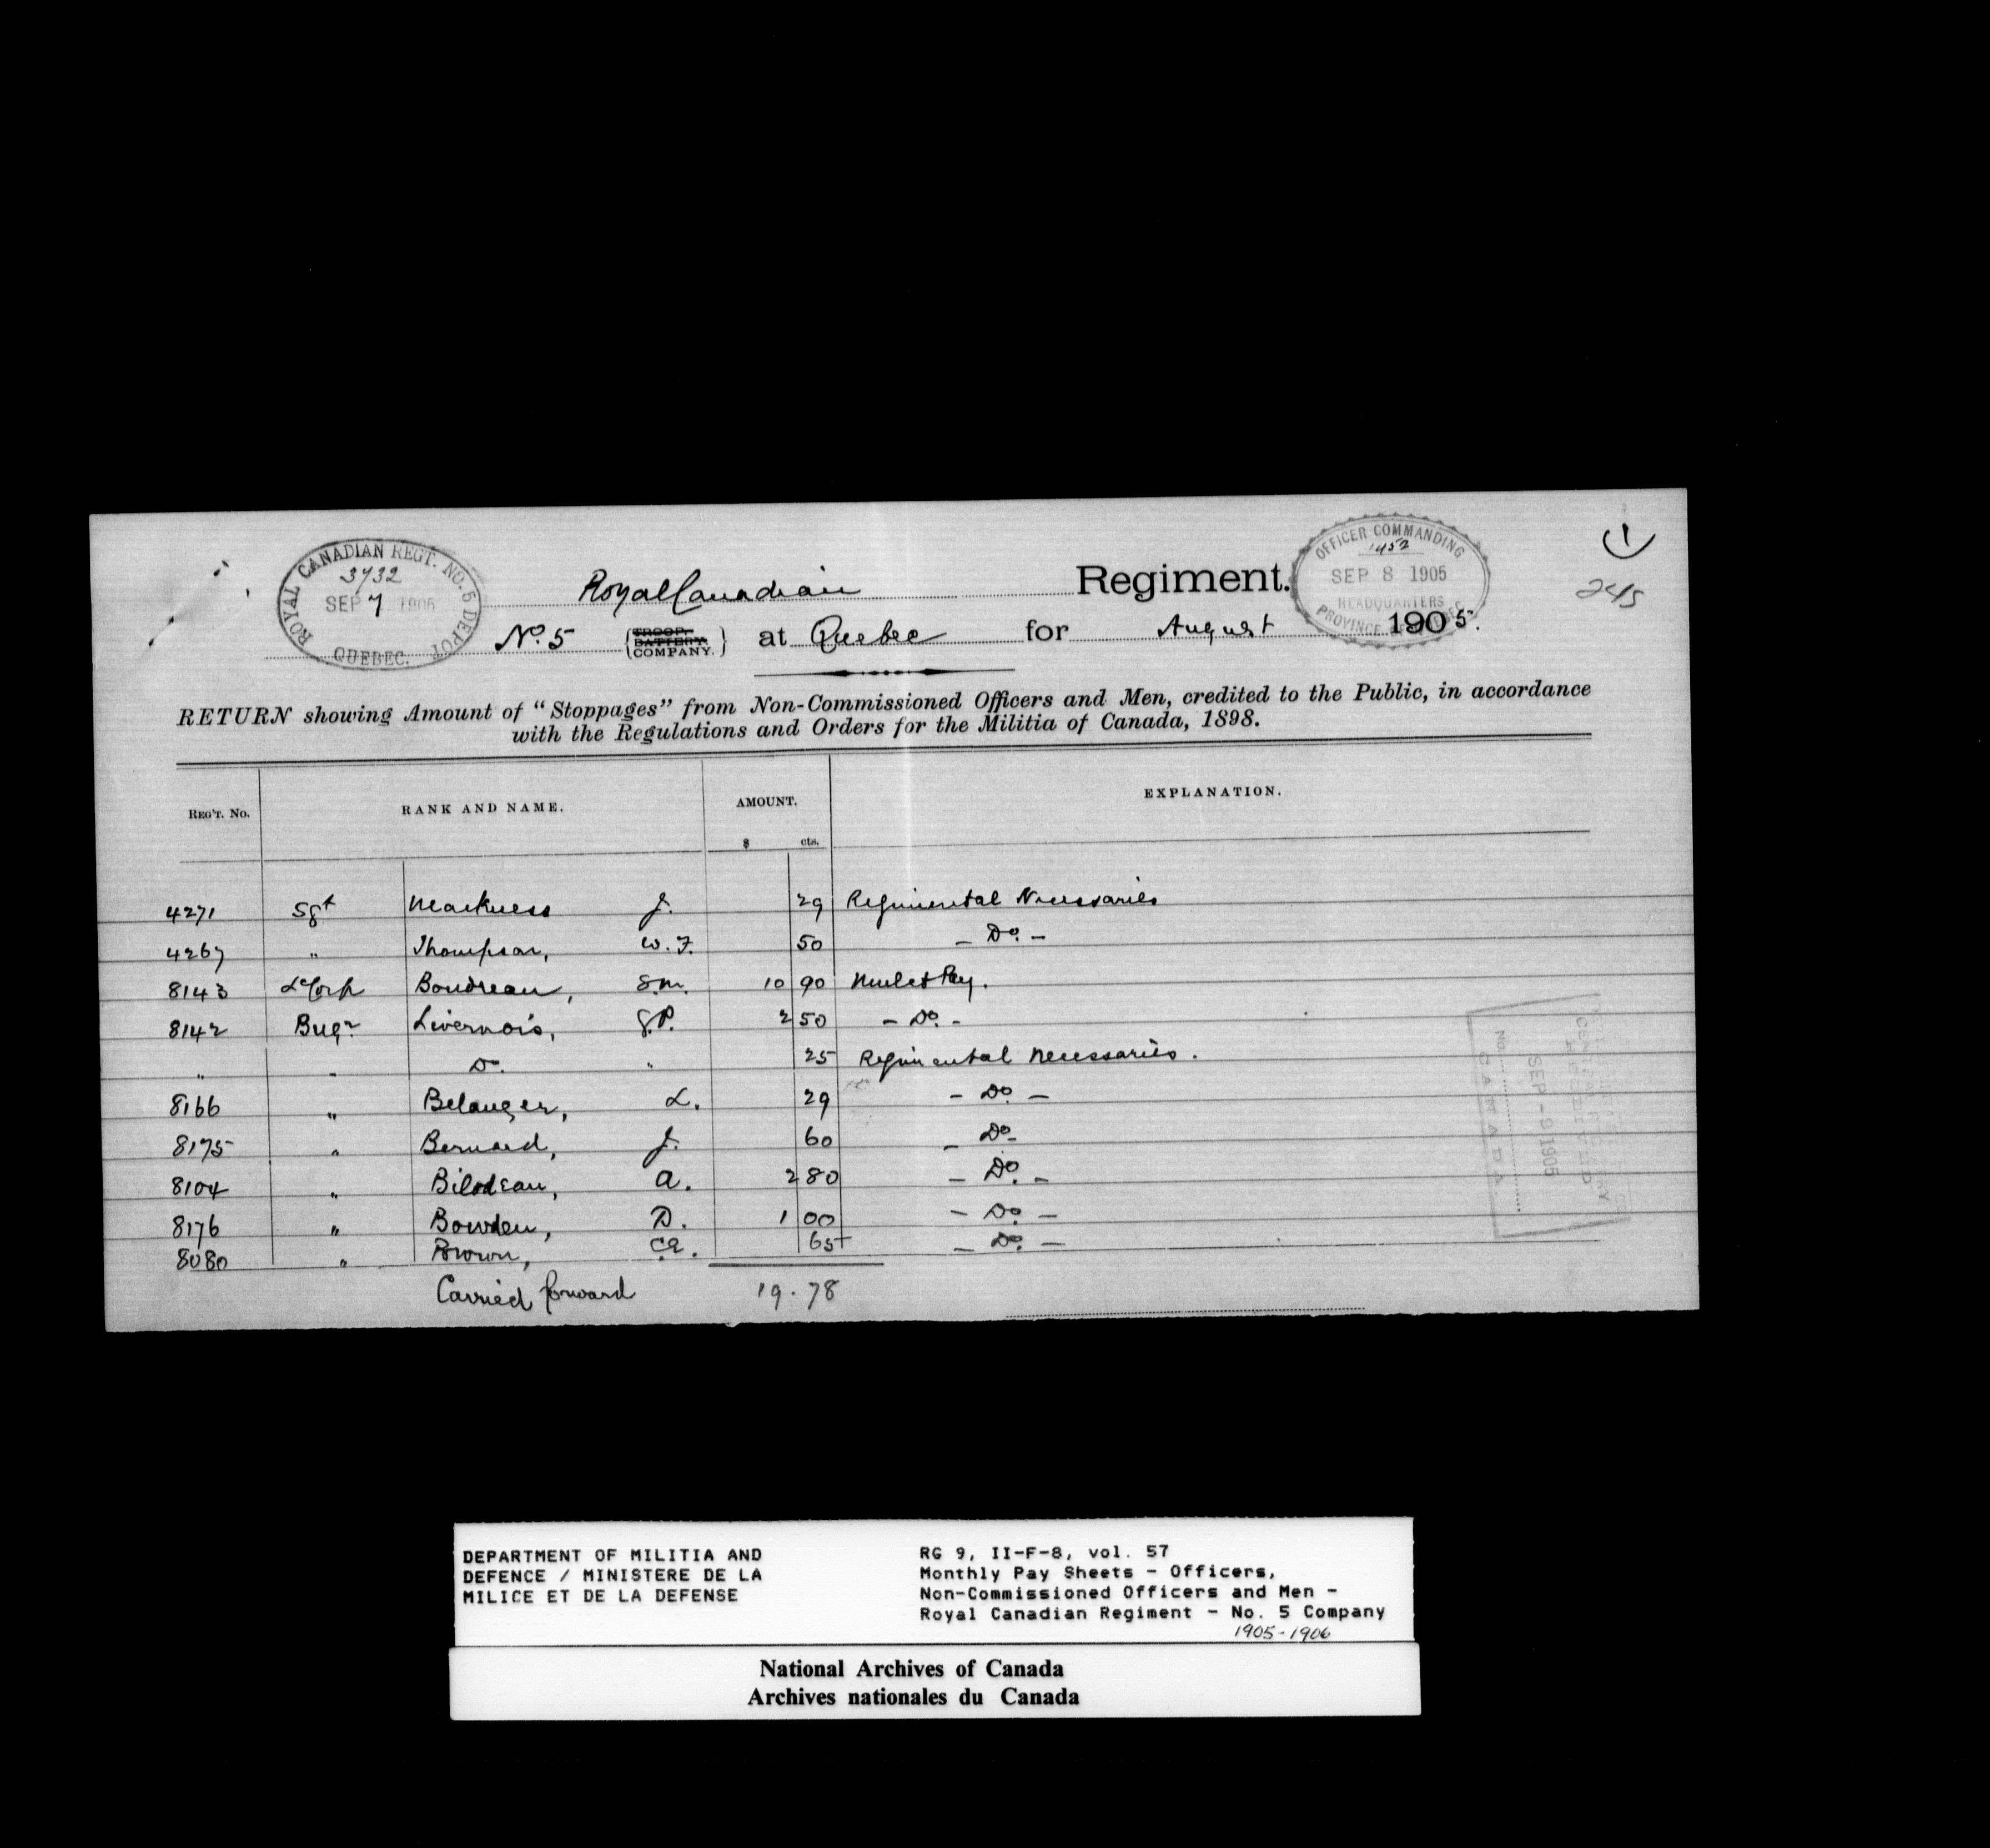 ROYAL CANADIAN REGT. NO. 5 DEPOT
3732
SEP 7 1905
QUEBEC.
OFFICER COMMANDING
1452
SEP 8 1905
HEADQUARTERS
PROVINCE
1
245
Royal Canadian Regiment.
No. 5 {TROOP. BATTERY. COMPANY.} at Quebec for August 1905.
RETURN showing Amount of "Stoppages" from Non-Commissioned Officers and Men, credited to the Public, in accordance
with the Regulations and Orders for the Militia of Canada, 1898.
REG'T. No. RANK AND NAME. AMOUNT. EXPLANATION.
$ cts.
4271 Sgt J. 29 Regimental Necessaries
4267 " Thompson, W. F. 50 - Do. -
8143 L/Corp Boudreau, S.M. 10 90 Mulct Pay.
8142 Bugr Livernois, P. 2 50 - Do. -
" " Do. " 25 Regimental Necessaries.
8166 " Belanger, L. 29 - Do. -
8175 " Bernard, J. 60 - Do -
8104 " Bilodeau, A. 2 80 - Do. -
8176 " Bowden, D. 1 00 - Do. -
8080 " Brown, 65 - Do. -
Carried forward 19.78
SEP - 9 1905
CANADA
DEPARTMENT OF MILITIA AND
DEFENCE / MINISTERE DE LA
MILICE ET DE LA DEFENSE
RG 9, II-F-8, vol. 57
Monthly Pay Sheets - Officers,
Non-Commissioned Officers and Men -
Royal Canadian Regiment - No. 5 Company
1905-1906
National Archives of Canada
Archives nationales du Canada